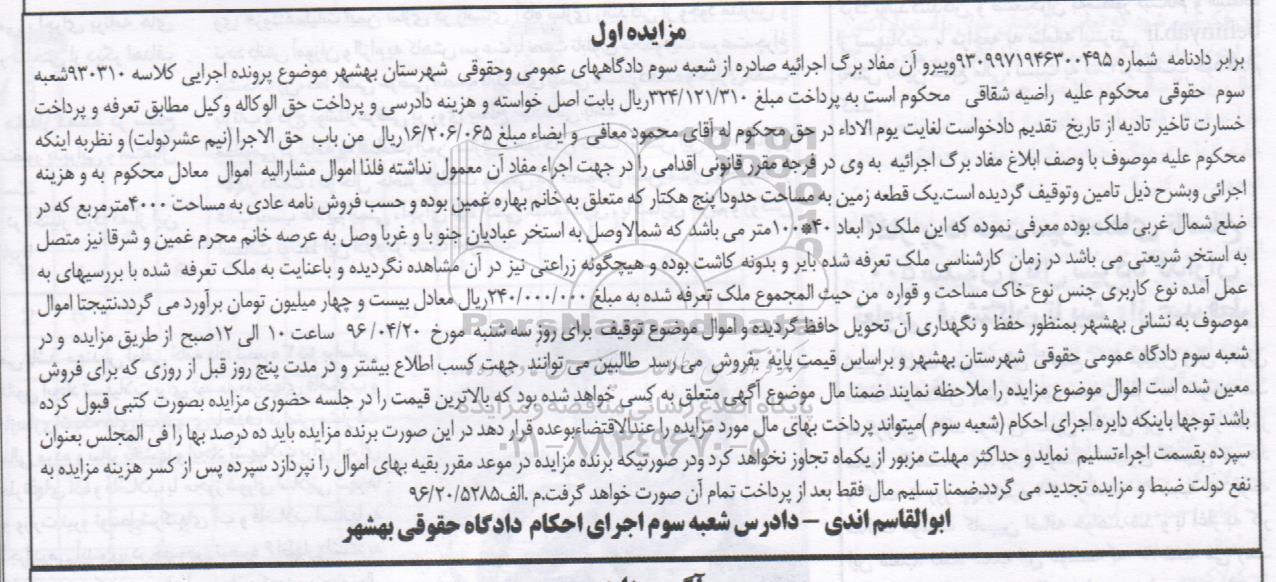 مزایده اول
برابر دادنامه شماره ۹۳۰۹۹۷۱۹۴۶۳۰۰۴۹۵وپیرو آن مفاد برگ اجرائیه صادره از شعبه سوم دادگاههای عمومی وحقوقی شهرستان بهشهر موضوع پرونده اجرایی کلاسه ۹۳۰۳۱۰شعبه
سوم حقوقی محکوم علیه راضیه شقاقی محکوم است به پرداخت مبلغ ۳۲۴/۱۲۱/۳۱۰ریال بابت اصل خواسته و هزینه دادرسی و پرداخت حق الوکاله وکیل مطابق تعرفه و پرداخت
خسارت تاخیر تادیه از تاریخ تقدیم دادخواست لغایت یوم الاداء در حق محکوم له آقای محمود معافی و ایضاء مبلغ ۱۶/۲۰۶/۰۶۵ریال من باب حق الاجرا (نیم عشردولت) و نظربه اینکه
محکوم علیه موصوف با وصف ابلاغ مفاد برگ اجرائیه به وی در فرجه مقرر قانونی اقدامی را در جهت اجراء مفاد آن معمول نداشته فلذا اموال مشارالیه اموال معادل محکوم به و هزینه
اجرائی وبشرح ذیل تامین وتوقیف گردیده است.یک قطعه زمین به مساحت حدودا پنج هکتار که متعلق به خانم بهاره غمین بوده و حسب فروش نامه عادی به مساحت ۴۰۰۰مترمربع که در
ضلع شمال عربی ملک بوده معرفی نموده که این ملک در ابعاد ۴۰*۱۰۰متر می باشد که شمالاوصل به استخر عبادیان جنو با و غربا وصل به عرصه خانم محرم غمین و شرقا نیز متصل
به استخر شریعتی می باشد در زمان کارشناسی ملک تعرفه شده بایر و بدونه کاشت بوده و هیچگونه زراعتی نیز در آن مشاهده نگردیده و باعنایت به ملک تعرفه شده با بررسیهای به
عمل آمده نوع کاربری جنس نوع خاک مساحت و قواره من حیث المجموع ملک تعرفه شده به مبلغ ۲۴۰/۰۰۰/۰۰۰ریال معادل بیست و چهار میلیون تومان برآورد می گردد.نتیجتا اموال
موصوف به نشانی بهشهر بمنظور حفظ و نگهداری آن تحویل حافظ گردیده و اموال موضوع توقیف برای روز سه شنبه مورخ ۹۶/۰۴/۲۰ ساعت ۱۰ الی ۱۲صبح از طریق مزایده و در
شعبه سوم دادگاه عمومی حقوقی شهرستان بهشهر و براساس قیمت پایه بفروش می رسد طالبین می توانند جهت کسب اطلاع بیشتر و در مدت پنج روز قبل از روزی که برای فروش
معین شده است اموال موضوع مزایده را ملاحظه نمایند ضمنا مال موضوع آگهی متعلق به کسی خواهد شده بود که بالاترین قیمت را در جلسه حضوری مزایده بصورت کتبی قبول کرده
باشد توجها باینکه دایره اجرای احکام (شعبه سوم )میتواند پرداخت بهای مال مورد مزایده را عندالاقتضاءبوعده قرار دهد در این صورت برنده مزایده باید ده درصد بها را فی المجلس بعنوان
سپرده بقسمت اجراءتسلیم نماید و حداکثر مهلت مزبور از یکماه تجاوز نخواهد کرد ودر صورتیکه برنده مزایده در موعد مقرر بقیه بهای اموال را نپردازد سپرده پس از کسر هزینه مزایده به
نفع دولت ضبط و مزایده تجدید می گردد.ضمنا تسلیم مال فقط بعد از پرداخت تمام آن صورت خواهد گرفت.م .الف۹۶/۲۰/۵۲۸۵
ابوالقاسم اندی – دادرس شعبه سوم اجرای احکام دادگاه حقوقی بهشهر
ParsNamadData
پایگاه اطلاع رسانی مناقصه و مزایده
۰۲۱-۸۸۳۴۹۶۷۰-۵